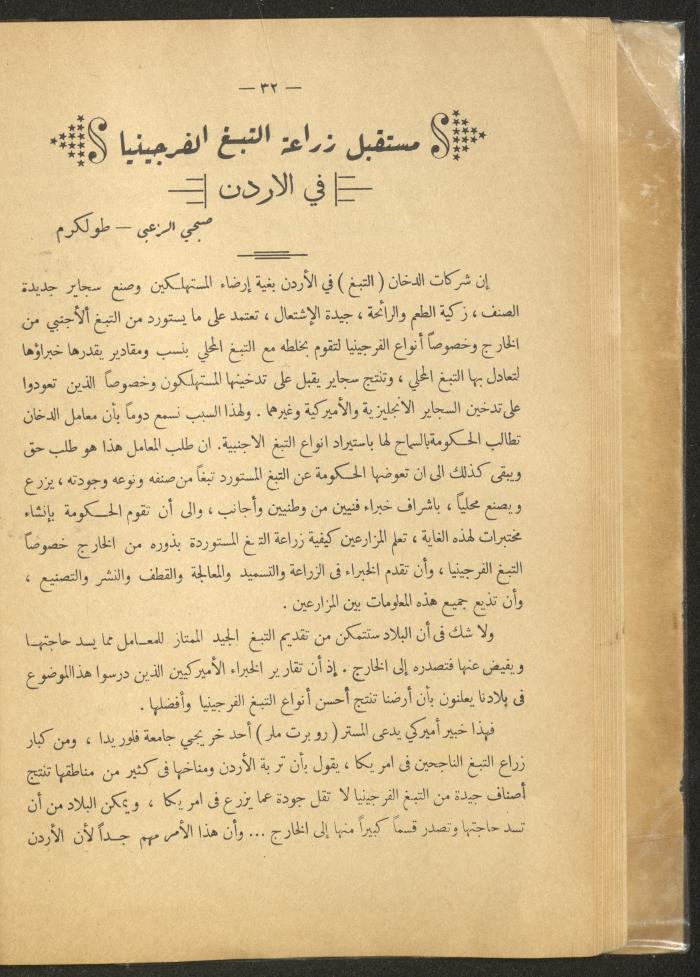 — ٣٢ —
مستقبل زراعة التبغ الفرجينيا
في الاردن
صبحي الزعبي — طولكرم
إن شركات الدخان ( التبغ ) في الأردن بغية إرضاء المستهلكين وصنع سجاير جديدة
الصنف ، زكية الطعم والرائحة ، جيدة الإشتعال ، تعتمد على ما يستورد من التبغ ألأجنبي من
الخارج وخصوصاً أنواع الفرجينيا لتقوم بخلطه مع التبغ المحلي بنسب ومقادير يقدرها خبراؤها
لتعادل بها التبغ المحلي ، وتنتج سجاير يقبل على تدخينها المستهلكون وخصوصاً الذين تعودوا
على تدخين السجاير الانجليزية والأميركية وغيرهما . ولهذا السبب نسمع دوماً بأن معامل الدخان
تطالب الحكومة بالسماح لها باستيراد انواع التبغ الاجنبية. ان طلب المعامل هذا هو طلب حق
ويبقى كذلك الى ان تعوضها الحكومة عن التبغ المستورد تبغاً من صنفه ونوعه وجودته ، يزرع
ويصنع محلياً ، باشراف خبراء فنيين من وطنيين وأجانب ، والى أن تقوم الحكومة بإنشاء
مختبرات لهذه الغاية ، تعلم المزارعين كيفية زراعة التبغ المستوردة بذوره من الخارج خصوصاً
التبغ الفرجينيا ، وأن تقدم الخبراء فى الزراعة والتسميد والمعالجة والقطف والنشر والتصنيع ،
وأن تذيع جميع هذه المعلومات بين المزارعين .
ولا شك فى أن البلاد ستتمكن من تقديم التبغ الجيد الممتاز للمعامل مما يسد حاجتها
ويفيض عنها فتصدره إلى الخارج . إذ أن تقارير الخبراء الأميركيين الذين درسوا هذا الموضوع
فى بلادنا يعلنون بأن أرضنا تنتج أحسن أنواع التبغ الفرجينيا وأفضلها .
فهذا خبير أميركي يدعى المستر ( روبرت ملر ) أحد خريجي جامعة فلوريدا ، ومن كبار
زراع التبغ الناجحين فى امريكا ، يقول بأن تربة الأردن ومناخها فى كثير من مناطقها تنتج
أصناف جيدة من التبغ الفرجينيا لا تقل جودة عما يزرع فى امريكا ، ويمكن البلاد من أن
تسد حاجتها وتصدر قسماً كبيراً منها إلى الخارج ... وأن هذا الأمر مهم جداً لأن الأردن